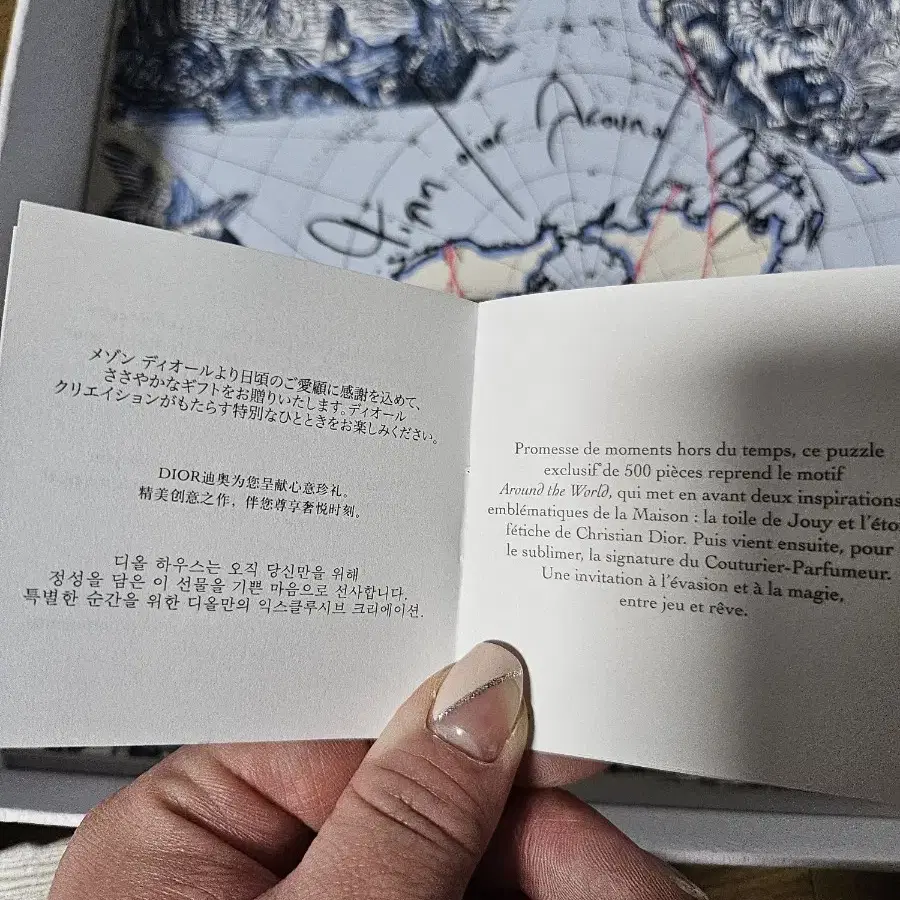 Around
メゾン ディオールより日頃のご愛顧に感謝を込めて、
ささやかなギフトをお贈りいたします。ディオール
クリエイションがもたらす特別なひとときをお楽しみください。
DIOR迪奥为您呈献心意珍礼。
精美创意之作，伴您尊享奢悦时刻。
디올 하우스는 오직 당신만을 위해
정성을 담은 이 선물을 기쁜 마음으로 선사합니다.
특별한 순간을 위한 디올만의 익스클루시브 크리에이션.
Promesse de moments hors du temps, ce puzzle
exclusif de 500 pièces reprend le motif
Around the World, qui met en avant deux inspirations
emblématiques de la Maison : la toile de Jouy et l'éto
fétiche de Christian Dior. Puis vient ensuite, pour
le sublimer, la signature du Couturier-Parfumeur.
Une invitation à l'évasion et à la magie,
entre jeu et rêve.